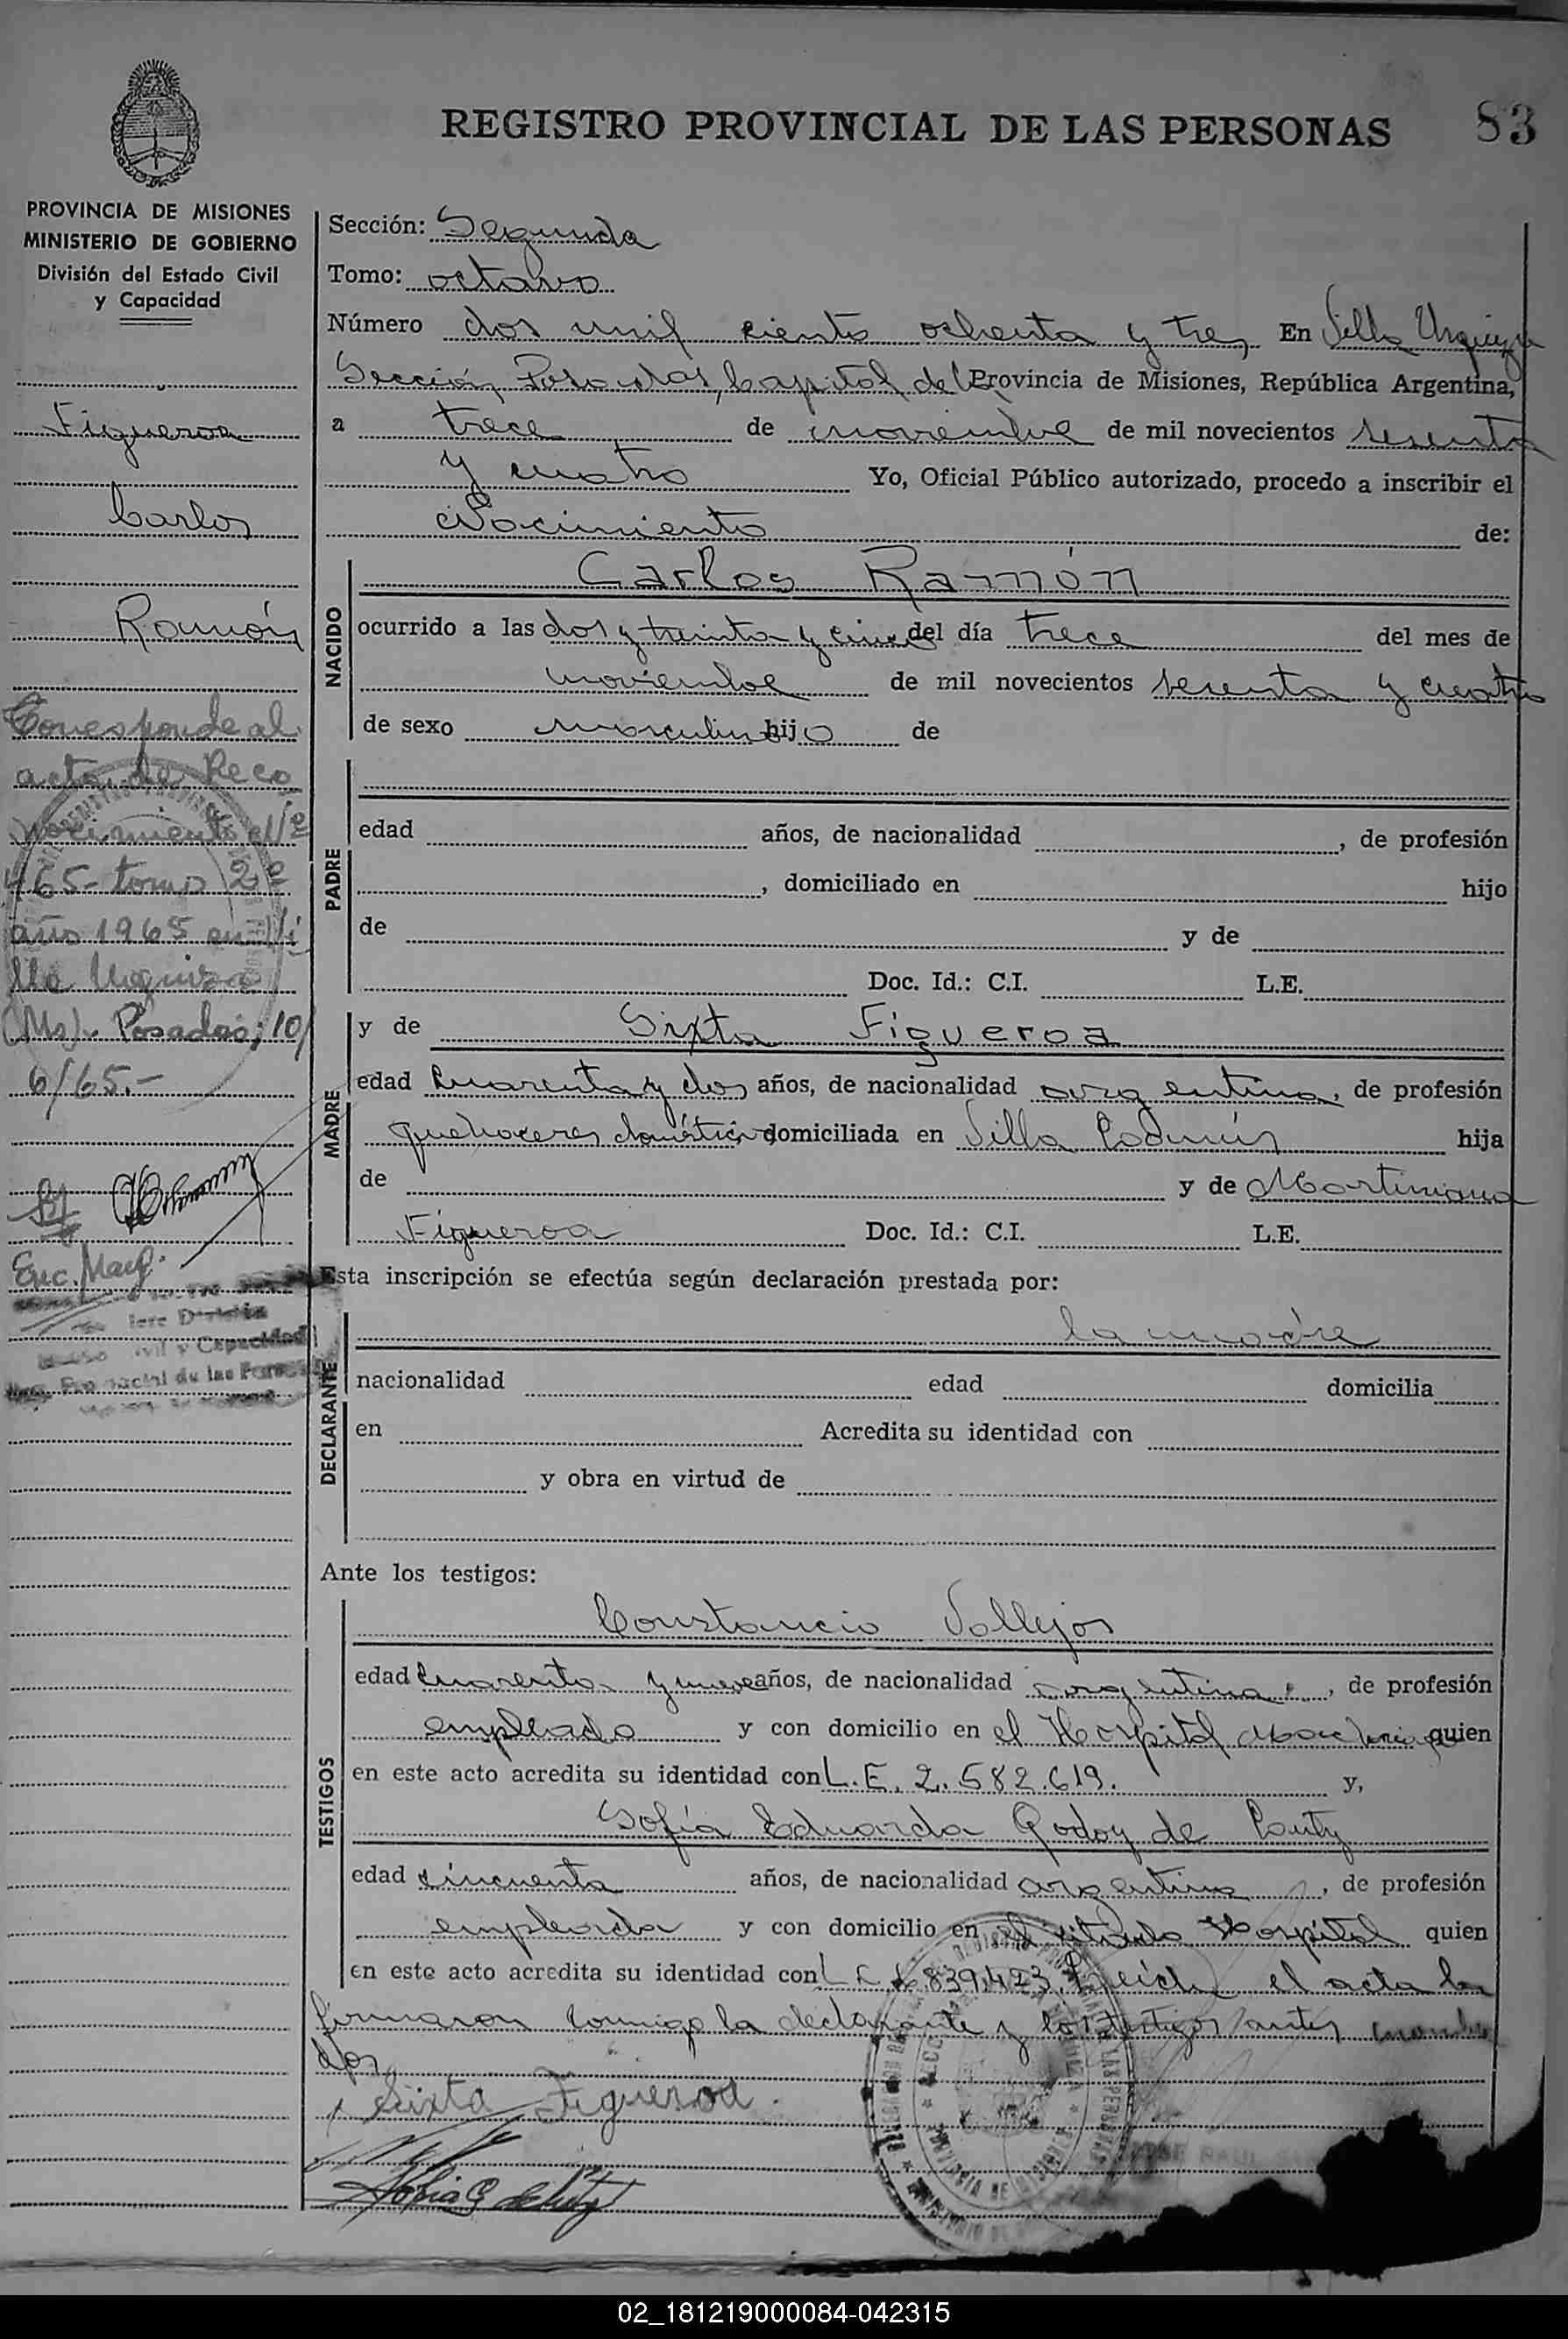 REGISTRO PROVINCIAL DE LAS PERSONAS 83
PROVINCIA DE MISIONES
MINISTERIO DE GOBIERNO
División del Estado Civil
y Capacidad
Figueroa
Carlos
Ramón
Corresponde al
acta de Reco
nocimiento Nº
465- tomo 2º
año 1965 en Vi
lla Urquiza
(Ms)- Posadas; 10/
6/65.-
Enc. May.
Sección: Segunda
Tomo: octavo
Número dos mil ciento ochenta y tres En Villa Urquiza
Sección, Posadas, Capital de la Provincia de Misiones, República Argentina,
a trece de noviembre de mil novecientos sesenta
y cuatro Yo, Oficial Público autorizado, procedo a inscribir el
Nacimiento de:
NACIDO
Carlos Ramón
ocurrido a las dos y treinta y cinco del día trece del mes de
noviembre de mil novecientos sesenta y cuatro
de sexo masculino hijo de
PADRE
edad años, de nacionalidad , de profesión
, domiciliado en hijo
de y de
Doc. Id.: C.I. L.E.
MADRE
y de Sixta Figueroa
edad cuarenta y dos años, de nacionalidad argentina, de profesión
quehaceres domésticos domiciliada en Villa hija
de y de Martiniana
Figueroa Doc. Id.: C.I. L.E.
Esta inscripción se efectúa según declaración prestada por:
DECLARANTE
la madre
nacionalidad edad domicilia
en Acredita su identidad con
y obra en virtud de
Ante los testigos:
TESTIGOS
Constancio Vallejos
edad cuarenta y nueve años, de nacionalidad argentina, de profesión
empleado y con domicilio en el Hospital quien
en este acto acredita su identidad con L.E. 2.582.619. y,
Sofía Eduarda Godoy de
edad cincuenta años, de nacionalidad argentina, de profesión
empleada y con domicilio en el citado Hospital quien
en este acto acredita su identidad con 839.423. Leída el acta la
firmaron conmigo la declarante y los testigos antes nombra
dos
Sixta Figueroa.
02_181219000084-042315